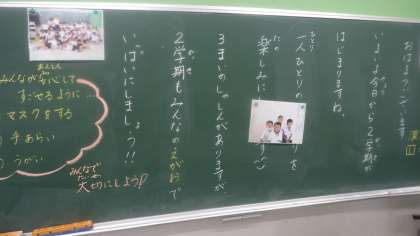 おはようございます。
いよいよ今日から2学期が
はじまりますね。
一人ひとりの
ひとり
を
楽しみに
たの
3まいのしゃしんがありますが、
2学期もみんなのえがおで
いっぱいにしましょう!!
みんなが安心して
あんしん
すごせるように…
マスクをする
手あらい
うがい
みんなで
大切にしよう